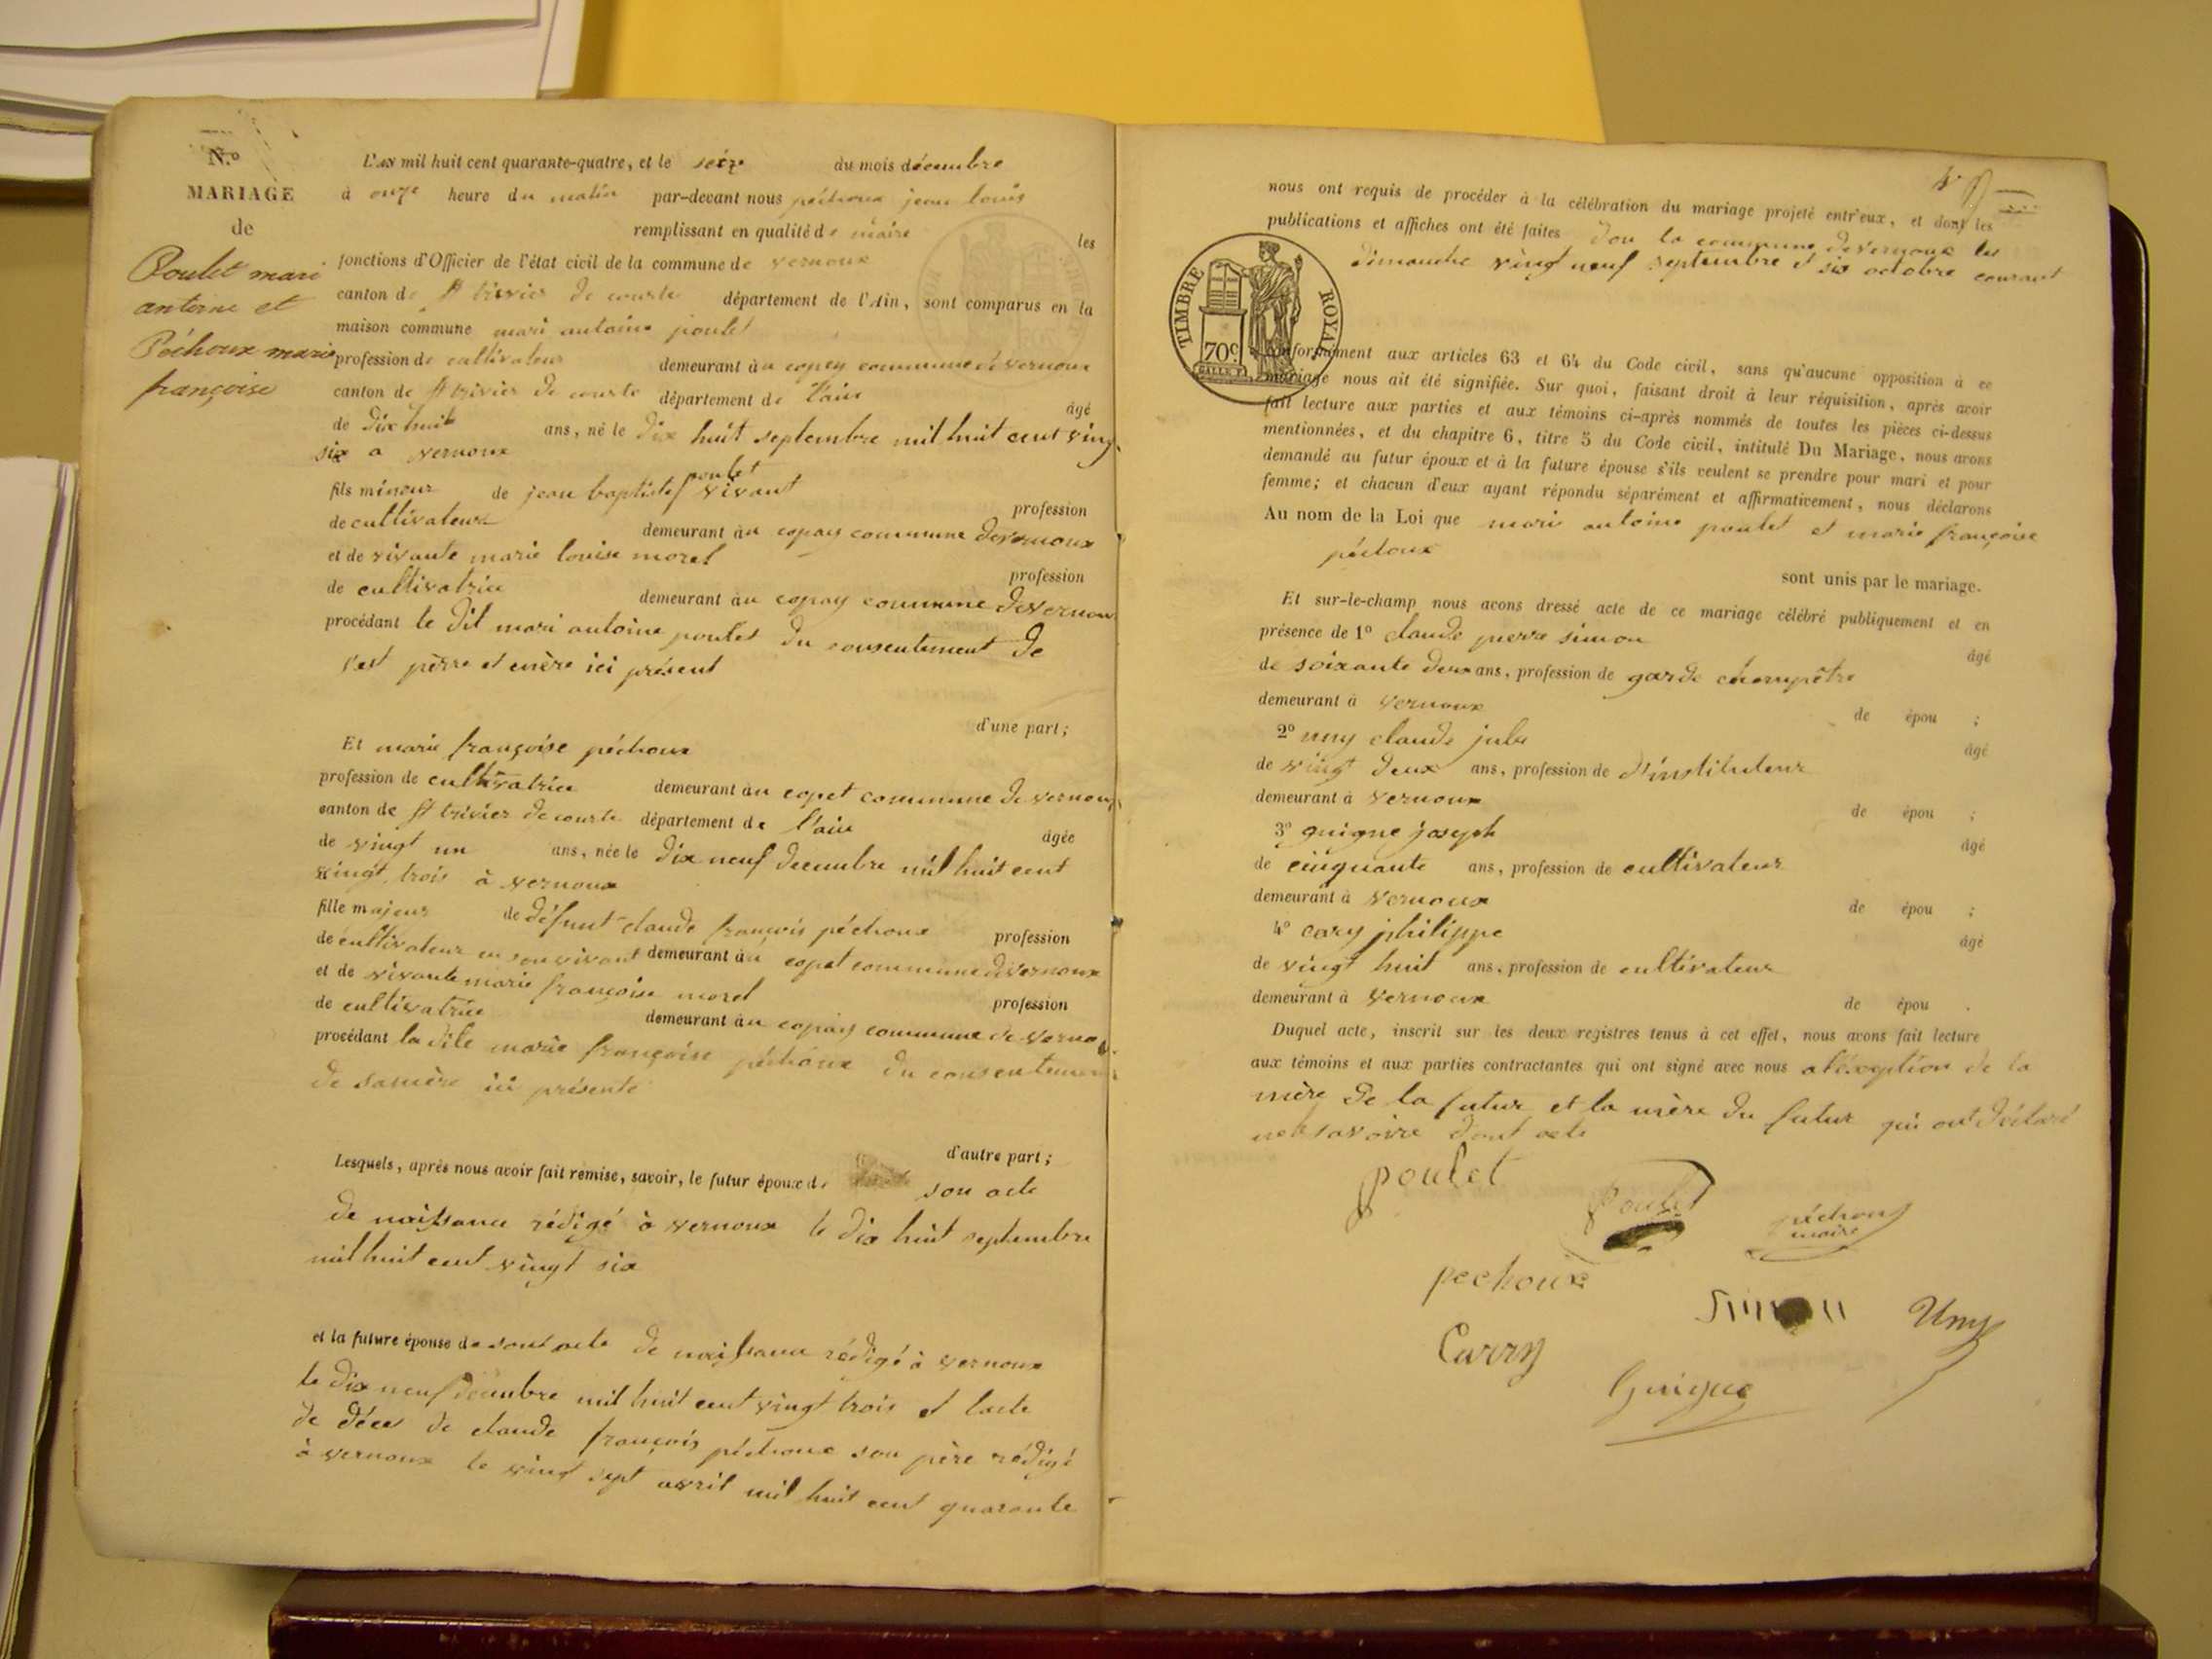 N.º
MARIAGE
de
Poulet mari
antoine et
Péchoux marie
françoise
L'AN mil huit cent quarante-quatre, et le seize du mois décembre
à onze heure du matin par-devant nous péchoux jean louis
remplissant en qualité de maire les
fonctions d'Officier de l'état civil de la commune de vernoux
canton de St trivier de courte département de l'Ain, sont comparus en la
maison commune mari antoine poulet
profession de cultivateur demeurant au copey commune de vernoux
canton de St trivier de courte département de l'ain âgé
de dix huit ans, né le dix huit septembre mil huit cent vingt
six a vernoux
fils mineur de jean baptiste poulet vivant profession
de cultivateur demeurant au copay commune de vernoux
et de vivante marie louise morel profession
de cultivatrice demeurant au copay commune de vernoux
procédant le dit mari antoine poulet du consentement de
s'est père et mère ici présent
d'une part;
Et marie françoise péchoux
profession de cultivatrice demeurant au copet commune de vernoux
canton de St trivier de courte département de l'ain âgée
de vingt un ans, née le dix neuf decembre mil huit cent
vingt trois à vernoux
fille majeur de défunt claude françois péchoux profession
de cultivateur en son vivant demeurant au copet commune de vernoux
et de vivante marie françoise morel profession
de cultivatrice demeurant au copay commune de vernoux
procédant la dite marie françoise péchoux du consentement
de sa mère ici présente
d'autre part;
Lesquels, après nous avoir fait remise, savoir, le futur époux de son acte
de naissance rédigé à vernoux le dix huit septembre
mil huit cent vingt six
et la future épouse de sont acte de naissance rédigé à vernoux
le dix neuf décembre mil huit cent vingt trois et l'acte
de décé de claude françois péchoux son père rédigé
à vernoux le vingt sept avril mil huit cent quarante
nous ont requis de procéder à la célébration du mariage projeté entr'eux, et dont les
publications et affiches ont été faites dan la commune de vernoux les
dimanche vingt neuf septembre et six octobre courant
TIMBRE ROYAL
70c.
conformément aux articles 63 et 64 du Code civil, sans qu'aucune opposition à ce
mariage nous ait été signifiée. Sur quoi, faisant droit à leur réquisition, après avoir
fait lecture aux parties et aux témoins ci-après nommés de toutes les pièces ci-dessus
mentionnées, et du chapitre 6, titre 5 du Code civil, intitulé Du Mariage, nous avons
demandé au futur époux et à la future épouse s'ils veulent se prendre pour mari et pour
femme; et chacun d'eux ayant répondu séparément et affirmativement, nous déclarons
Au nom de la Loi que mari antoine poulet et marie françoise
péchoux
sont unis par le mariage.
Et sur-le-champ nous avons dressé acte de ce mariage célébré publiquement et en
présence de 1º claude pierre simon âgé
de soixante deux ans, profession de garde champêtre
demeurant à vernoux de épou ;
2º uny claude jule âgé
de vingt deux ans, profession de d'instituteur
demeurant à vernoux de épou ;
3º guigne joseph âgé
de cinquante ans, profession de cultivateur
demeurant à vernoux de épou ;
4º cary philippe âgé
de vingt huit ans, profession de cultivateur
demeurant à vernoux de épou .
Duquel acte, inscrit sur les deux registres tenus à cet effet, nous avons fait lecture
aux témoins et aux parties contractantes qui ont signé avec nous a l'éxception de la
mère de la futur et la mère du futur qui ont déclaré
ne savoire dont acte
poulet
Poulet
péchoux
maire
pechoux
Simon
Uny
Carry
Guigue